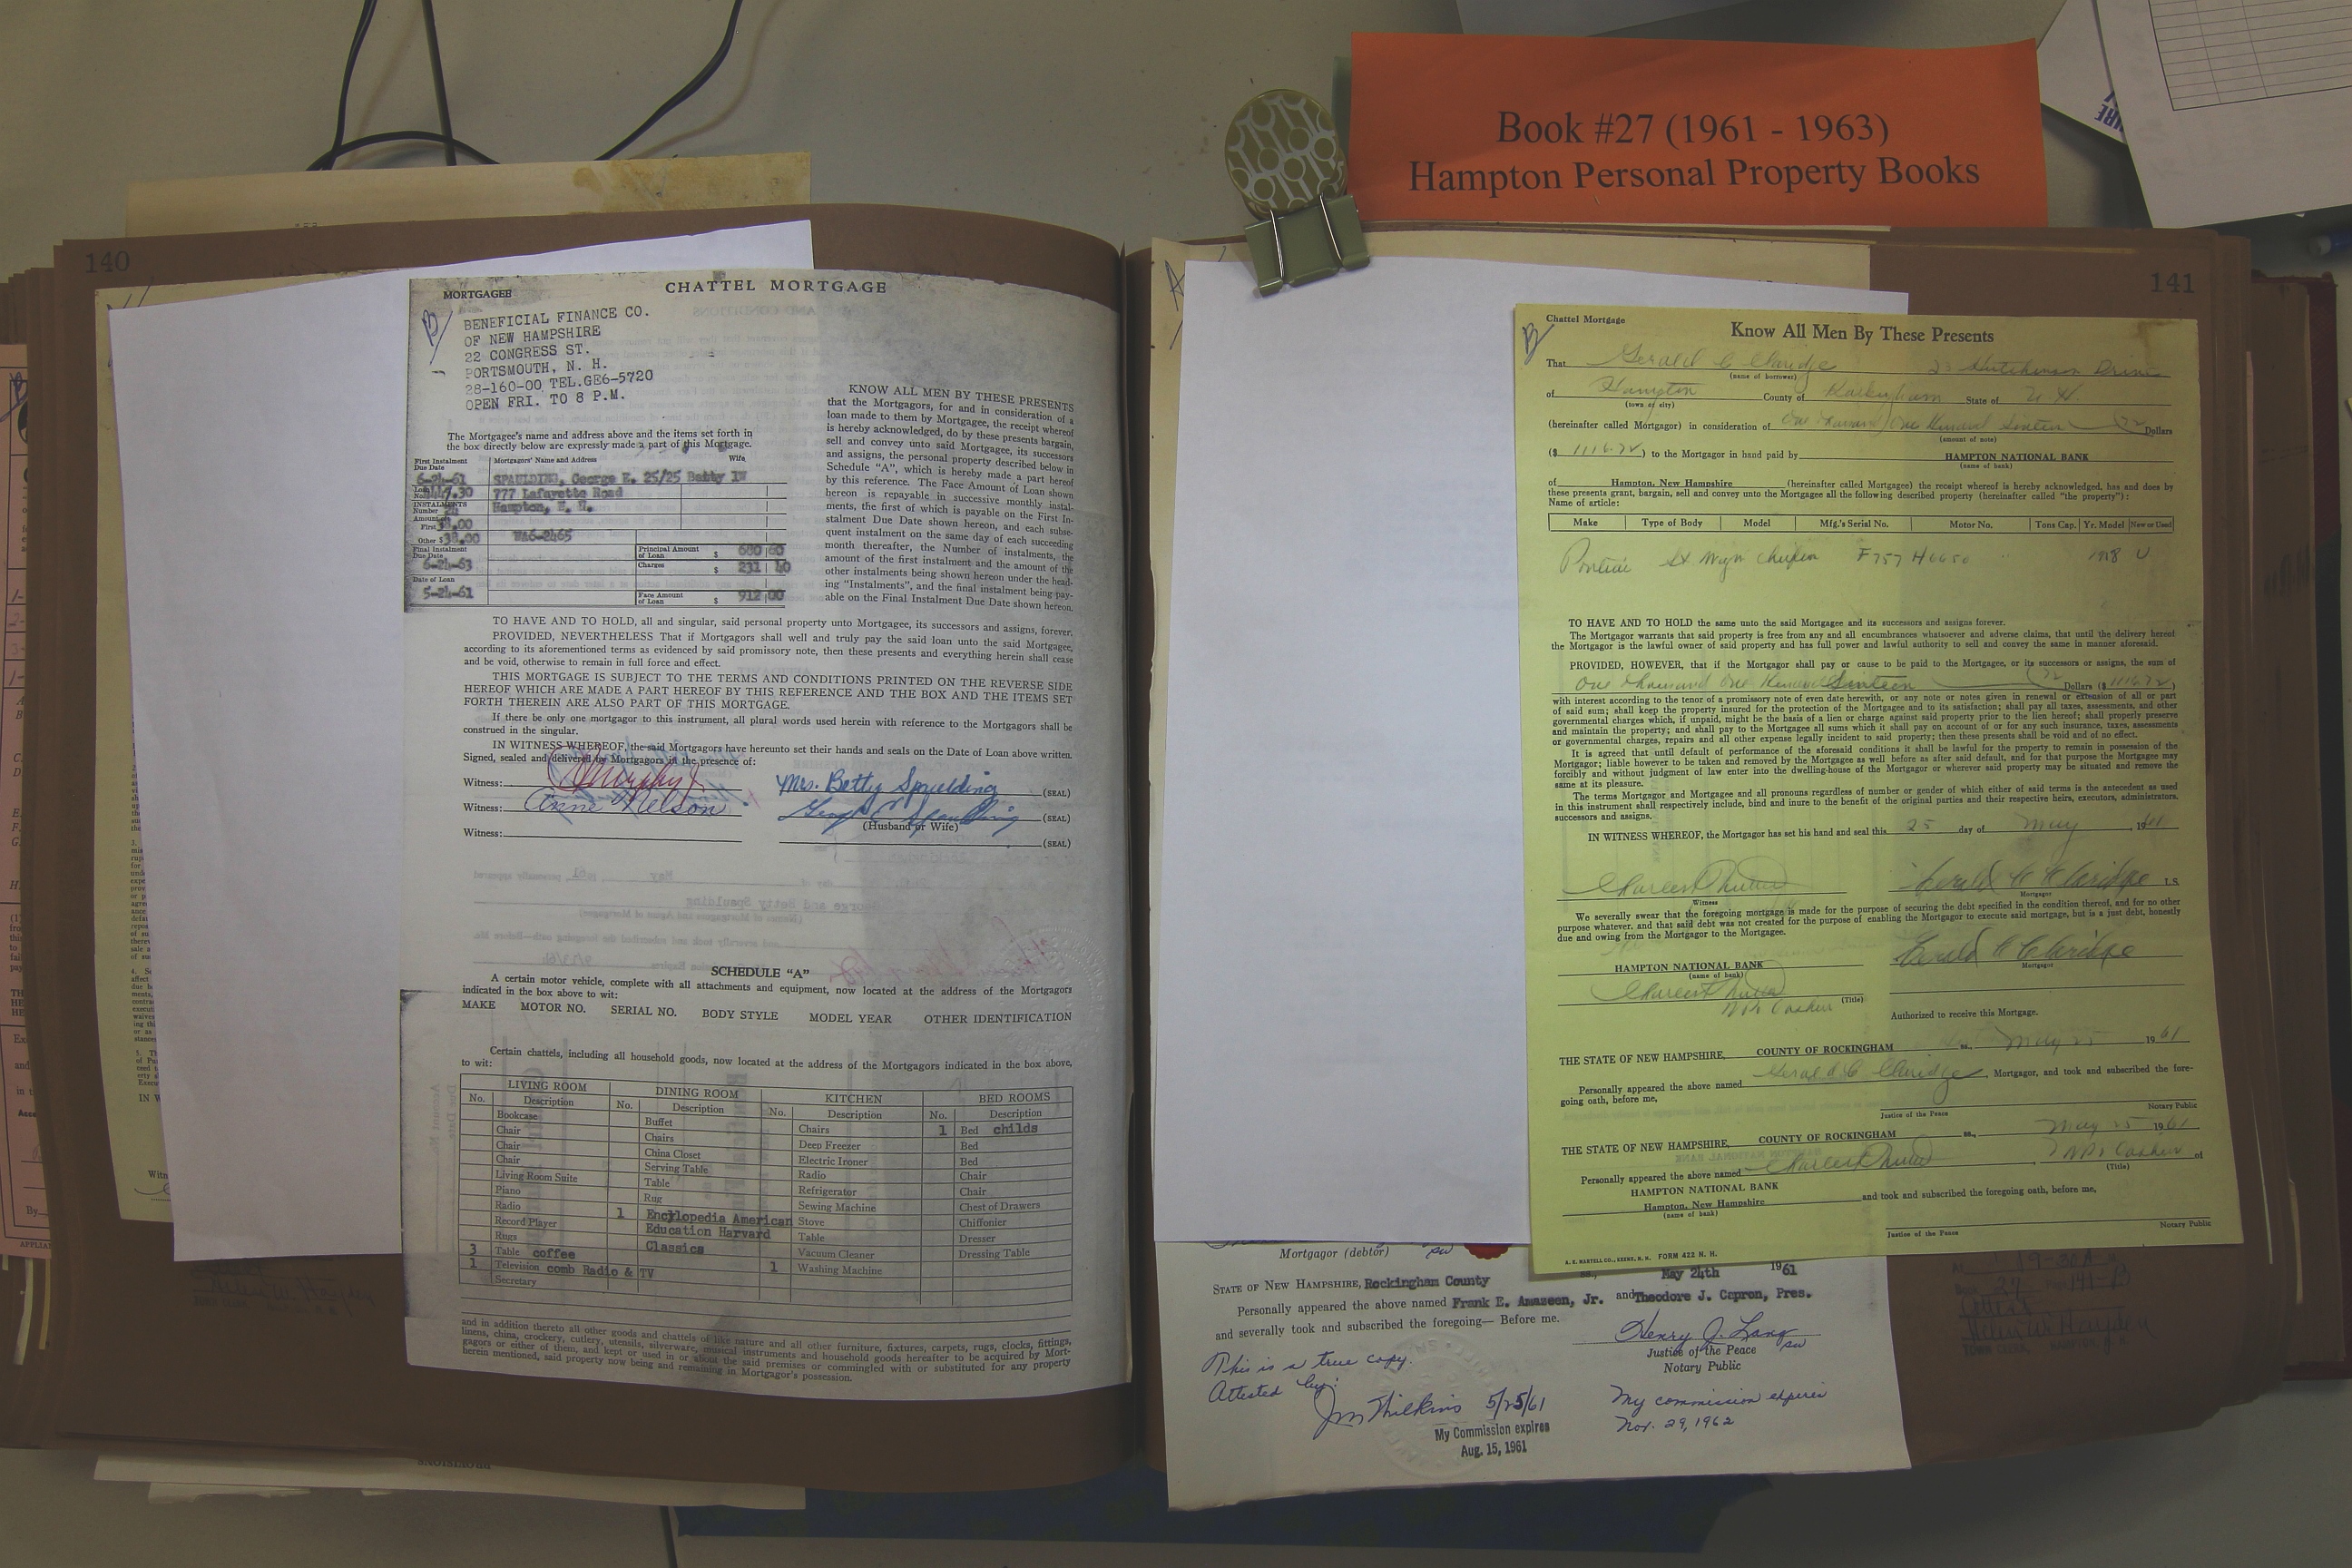 Book #27 (1961 - 1963)
Hampton Personal Property Books
140
MORTGAGEE
CHATTEL MORTGAGE
BENEFICIAL FINANCE CO.
OF NEW HAMPSHIRE
22 CONGRESS ST.
PORTSMOUTH, N. H.
28-160-00 TEL.GE6-5720
OPEN FRI. TO 8 P.M.
The Mortgagee's name and address above and the items set forth in
the box directly below are expressly made a part of this Mortgage.
First Instalment Due Date
Mortgagors' Name and Address
Wife
6-24-61
SPAULDING, George E. 25/25 Betty IW
777 Lafayette Road
INSTALMENTS
Number
Hampton, N. H.
Amount of
First 38.00
Other $ 38.00
WA6-2465
Final Instalment Due Date
6-24-63
Principal Amount of Loan $ 680 60
Charges $ 231 40
Date of Loan
5-24-61
Face Amount of Loan $ 912 00
KNOW ALL MEN BY THESE PRESENTS
that the Mortgagors, for and in consideration of a
loan made to them by Mortgagee, the receipt whereof
is hereby acknowledged, do by these presents bargain,
sell and convey unto said Mortgagee, its successors
and assigns, the personal property described below in
Schedule "A", which is hereby made a part hereof
by this reference. The Face Amount of Loan shown
hereon is repayable in successive monthly instal-
ments, the first of which is payable on the First In-
stalment Due Date shown hereon, and each subse-
quent instalment on the same day of each succeeding
month thereafter, the Number of instalments, the
amount of the first instalment and the amount of the
other instalments being shown hereon under the head-
ing "Instalments", and the final instalment being pay-
able on the Final Instalment Due Date shown hereon.
TO HAVE AND TO HOLD, all and singular, said personal property unto Mortgagee, its successors and assigns, forever.
PROVIDED, NEVERTHELESS That if Mortgagors shall well and truly pay the said loan unto the said Mortgagee,
according to its aforementioned terms as evidenced by said promissory note, then these presents and everything herein shall cease
and be void, otherwise to remain in full force and effect.
THIS MORTGAGE IS SUBJECT TO THE TERMS AND CONDITIONS PRINTED ON THE REVERSE SIDE
HEREOF WHICH ARE MADE A PART HEREOF BY THIS REFERENCE AND THE BOX AND THE ITEMS SET
FORTH THEREIN ARE ALSO PART OF THIS MORTGAGE.
If there be only one mortgagor to this instrument, all plural words used herein with reference to the Mortgagors shall be
construed in the singular.
IN WITNESS WHEREOF, the said Mortgagors have hereunto set their hands and seals on the Date of Loan above written.
Signed, sealed and delivered by Mortgagors in the presence of:
Witness: Murphy Mrs. Betty Spaulding (SEAL)
Witness: Anne Nelson George E Spaulding (SEAL)
(Husband or Wife)
Witness: (SEAL)
SCHEDULE "A"
A certain motor vehicle, complete with all attachments and equipment, now located at the address of the Mortgagors
indicated in the box above to wit:
MAKE MOTOR NO. SERIAL NO. BODY STYLE MODEL YEAR OTHER IDENTIFICATION
Certain chattels, including all household goods, now located at the address of the Mortgagors indicated in the box above,
to wit:
LIVING ROOM DINING ROOM KITCHEN BED ROOMS
No. Description No. Description No. Description No. Description
Bookcase Buffet Chairs 1 Bed childs
Chair Chairs Deep Freezer Bed
Chair China Closet Electric Ironer Bed
Chair Serving Table Radio Chair
Living Room Suite Table Refrigerator Chair
Piano Rug Sewing Machine Chest of Drawers
Radio 1 Encylopedia American Stove Chiffonier
Record Player Education Harvard Table Dresser
Rugs Classics Vacuum Cleaner Dressing Table
3 Table coffee 1 Washing Machine
1 Television comb Radio & TV
Secretary
and in addition thereto all other goods and chattels of like nature and all other furniture, fixtures, carpets, rugs, clocks, fittings,
linens, china, crockery, cutlery, utensils, silverware, musical instruments and household goods hereafter to be acquired by Mort-
gagors or either of them, and kept or used in or about the said premises or commingled with or substituted for any property
herein mentioned, said property now being and remaining in Mortgagor's possession.
141
Chattel Mortgage
Know All Men By These Presents
That Gerald C Claridge 23 Hutchinson Drive
(name of borrower)
of Hampton County of Rockingham State of N H.
(town or city)
(hereinafter called Mortgagor) in consideration of One thousand One Hundred Sixteen 72 Dollars
(amount of note)
($ 1116.72) to the Mortgagor in hand paid by HAMPTON NATIONAL BANK
(name of bank)
of Hampton, New Hampshire (hereinafter called Mortgagee) the receipt whereof is hereby acknowledged, has and does by
these presents grant, bargain, sell and convey unto the Mortgagee all the following described property (hereinafter called "the property"):
Name of article:
Make Type of Body Model Mfg.'s Serial No. Motor No. Tons Cap. Yr. Model New or Used
Pontiac St Wgn Chieftain F757H6650 1958 U
TO HAVE AND TO HOLD the same unto the said Mortgagee and its successors and assigns forever.
The Mortgagor warrants that said property is free from any and all encumbrances whatsoever and adverse claims, that until the delivery hereof
the Mortgagor is the lawful owner of said property and has full power and lawful authority to sell and convey the same in manner aforesaid.
PROVIDED, HOWEVER, that if the Mortgagor shall pay or cause to be paid to the Mortgagee, or its successors or assigns, the sum of
One thousand One Hundred Sixteen 72 Dollars ($ 1116.72)
with interest according to the tenor of a promissory note of even date herewith, or any note or notes given in renewal or extension of all or part
of said sum; shall keep the property insured for the protection of the Mortgagee and to its satisfaction; shall pay all taxes, assessments, and other
governmental charges which, if unpaid, might be the basis of a lien or charge against said property prior to the lien hereof; shall properly preserve
and maintain the property; and shall pay to the Mortgagee all sums which it shall pay on account of or for any such insurance, taxes, assessments
or governmental charges, repairs and all other expense legally incident to said property; then these presents shall be void and of no effect.
It is agreed that until default of performance of the aforesaid conditions it shall be lawful for the property to remain in possession of the
Mortgagor; liable however to be taken and removed by the Mortgagee as well before as after said default, and for that purpose the Mortgagee may
forcibly and without judgment of law enter into the dwelling-house of the Mortgagor or wherever said property may be situated and remove the
same at its pleasure.
The terms Mortgagor and Mortgagee and all pronouns regardless of number or gender of which either of said terms is the antecedent as used
in this instrument shall respectively include, bind and inure to the benefit of the original parties and their respective heirs, executors, administrators,
successors and assigns.
IN WITNESS WHEREOF, the Mortgagor has set his hand and seal this 25 day of May 1961
Gerald C Claridge L.S.
Witness Mortgagor
We severally swear that the foregoing mortgage is made for the purpose of securing the debt specified in the condition thereof, and for no other
purpose whatever, and that said debt was not created for the purpose of enabling the Mortgagor to execute said mortgage, but is a just debt, honestly
due and owing from the Mortgagor to the Mortgagee.
HAMPTON NATIONAL BANK Gerald C Claridge
(name of bank) Mortgagor
(Title)
Authorized to receive this Mortgage.
THE STATE OF NEW HAMPSHIRE, COUNTY OF ROCKINGHAM ss., May 25 1961
Personally appeared the above named Gerald C. Claridge, Mortgagor, and took and subscribed the fore-
going oath, before me,
Justice of the Peace Notary Public
THE STATE OF NEW HAMPSHIRE, COUNTY OF ROCKINGHAM ss., May 25 1961
Personally appeared the above named of
(Title)
HAMPTON NATIONAL BANK
Hampton, New Hampshire and took and subscribed the foregoing oath, before me,
(name of bank)
Justice of the Peace Notary Public
FORM 422 N. H.
Mortgagor (debtor)
STATE OF NEW HAMPSHIRE, Rockingham County ss., May 24th 1961
Personally appeared the above named Frank E. Amazeen, Jr. and Theodore J. Copron, Pres.
and severally took and subscribed the foregoing— Before me.
Henry J. Lang
Justice of the Peace
Notary Public
This is a true copy.
Attested by:
Jm Wilkins 5/25/61
My Commission expires
Aug. 15, 1961
My commission expires
Nov. 29, 1962